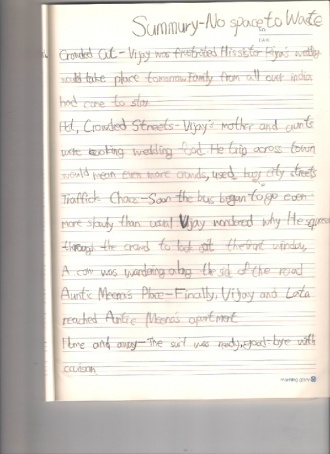 Summury-No space to Waste
Crowded Out- Vijay was frustrated His sister Priya's
would take place tomorrow family from all over india
had come to stay
Hot, Crowded Streets- Vijay's mother and aunts
were cooking wedding food. He trip across town
would mean even more crowds, used, busy city streets
Traffick Chaos- Soon the bus began to go even
more slowly than usual Vijay wondered why He
through the crowd to look out the window,
A cow was wandering along the side of the road
Auntie Meena's Place- Finally, Vijay and Lata
reached Antie Meena's apartment
Home and away- The suit was ready, good-bye with